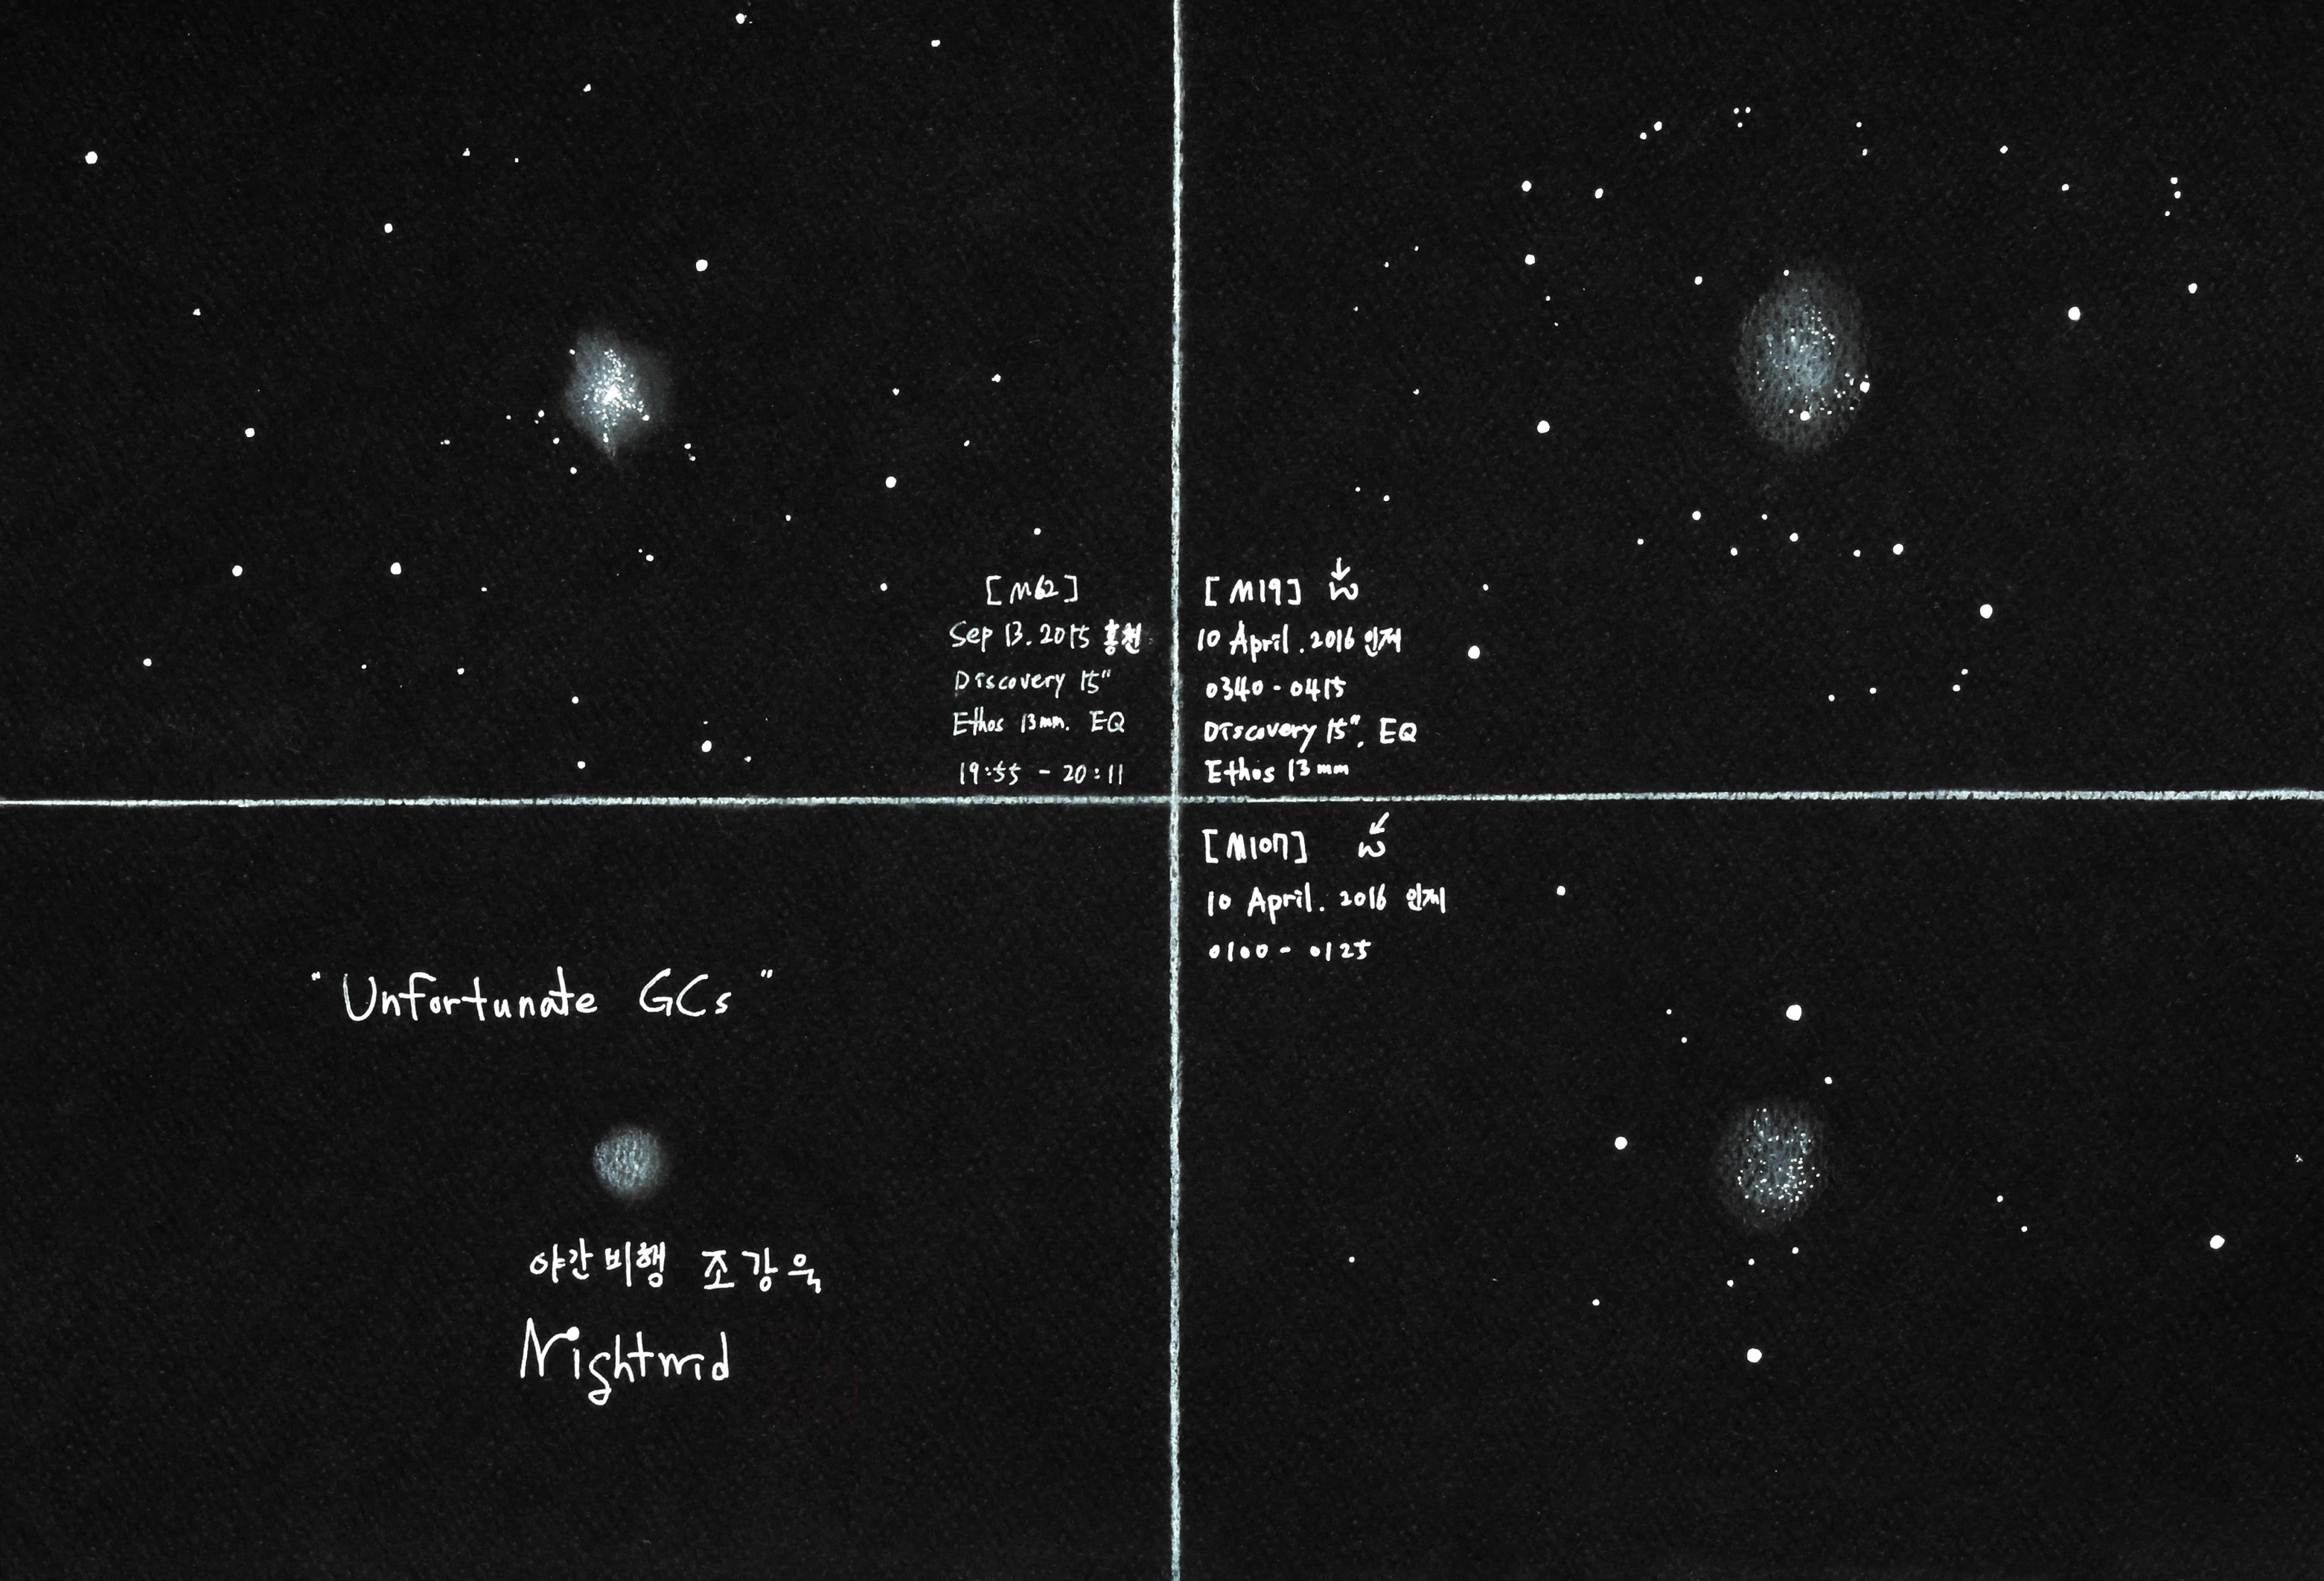 [M62]
Sep 13. 2015 홍천
Discovery 15"
Ethos 13mm. EQ
19:55 - 20:11
[M19] ↓ W
10 April. 2016 인제
0340 - 0415
Discovery 15", EQ
Ethos 13mm
[M107] ↙ W
10 April. 2016 인제
0100 - 0125
"Unfortunate GCs"
야간비행 조강욱
Nightwid